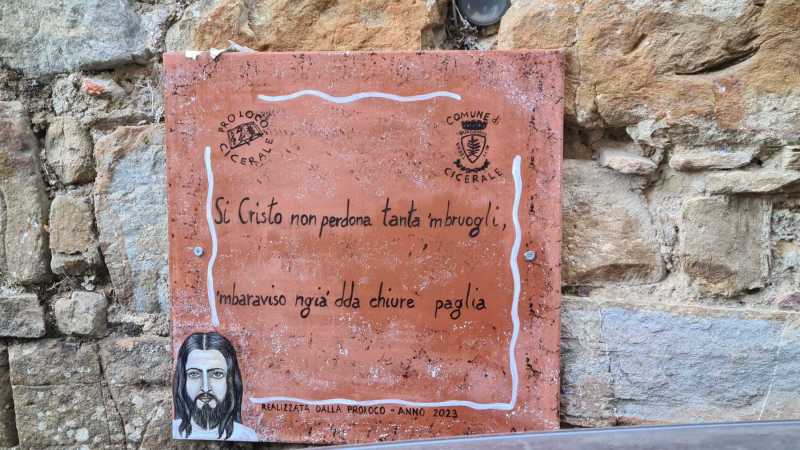 PROLOCO
CICERALE
COMUNE di
CICERALE
Si Cristo non perdona tanta 'mbruogli,
'mbaraviso ngia' dda chiure' paglia
REALIZZATA DALLA PROLOCO - ANNO 2023